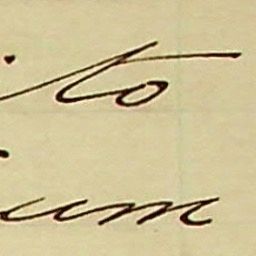 to
um